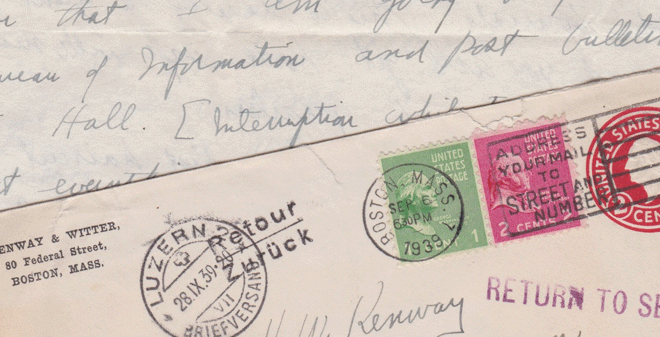 that I am going
of Information and post bulletin
Hall. [Interruption
ENWAY & WITTER,
80 Federal Street,
BOSTON, MASS.
LUZERN
28.IX.39-20
VII
BRIEFVERSAND
Retour
Zurück
BOSTON, MASS.
SEP 6
630PM
1939
UNITED
STATES
1
UNITED
2
CENTS
ADDRESS
YOUR MAIL
TO
STREET AND
NUMBER
UNITED STATES
CEN
RETURN TO SE
W. Kenway